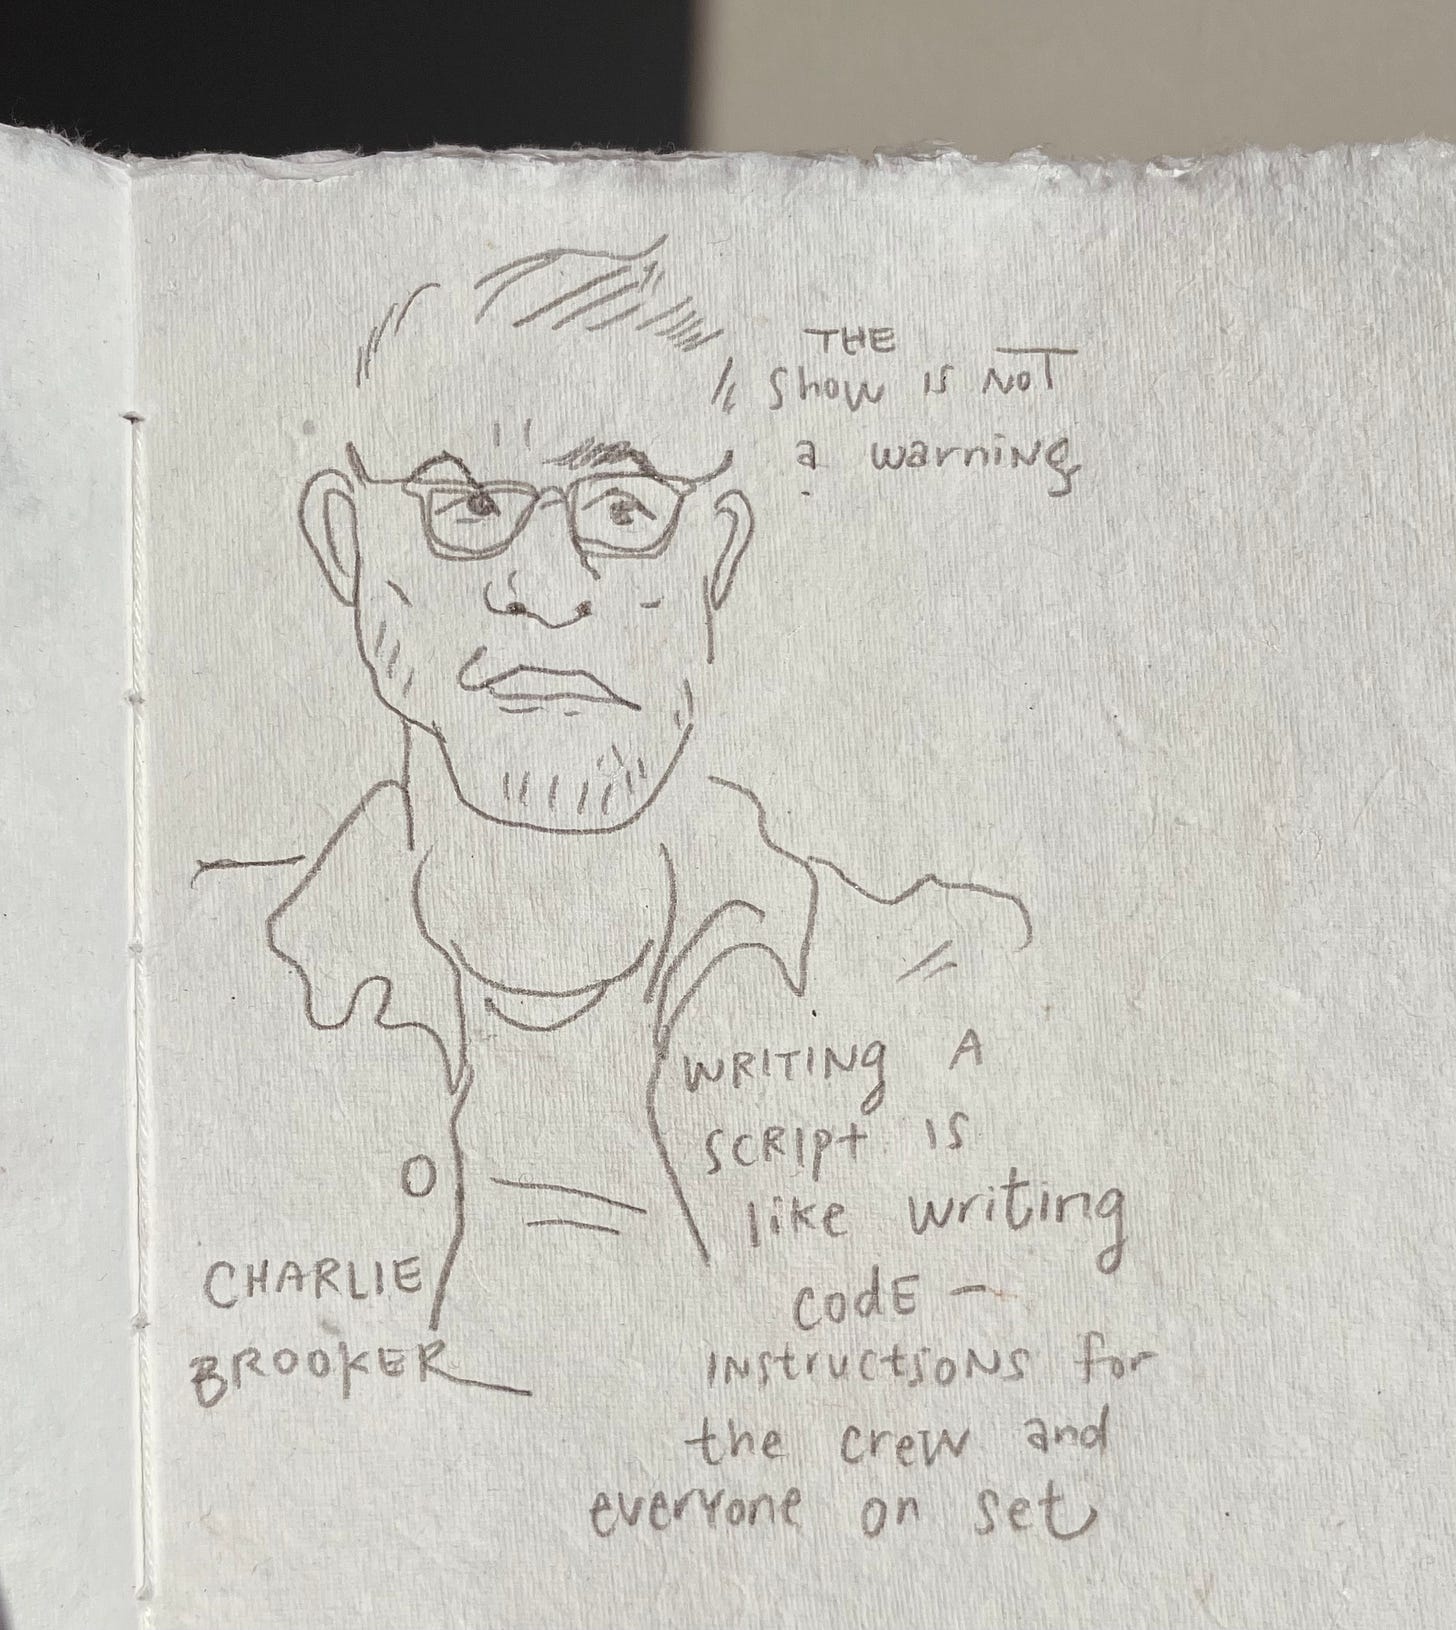 THE
Show is NOT
a warning
WRITING A
SCRIPT IS
like writing
CODE —
INstructsoNS for
the crew and
everyone on set
CHARLIE
BROOKER